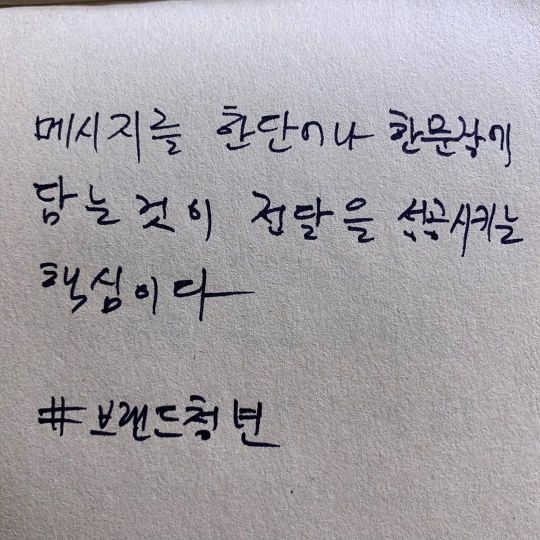 메시지를 한단어나 한문장에
담는것이 전달을 성공시키는
핵심이다
#브랜드청년